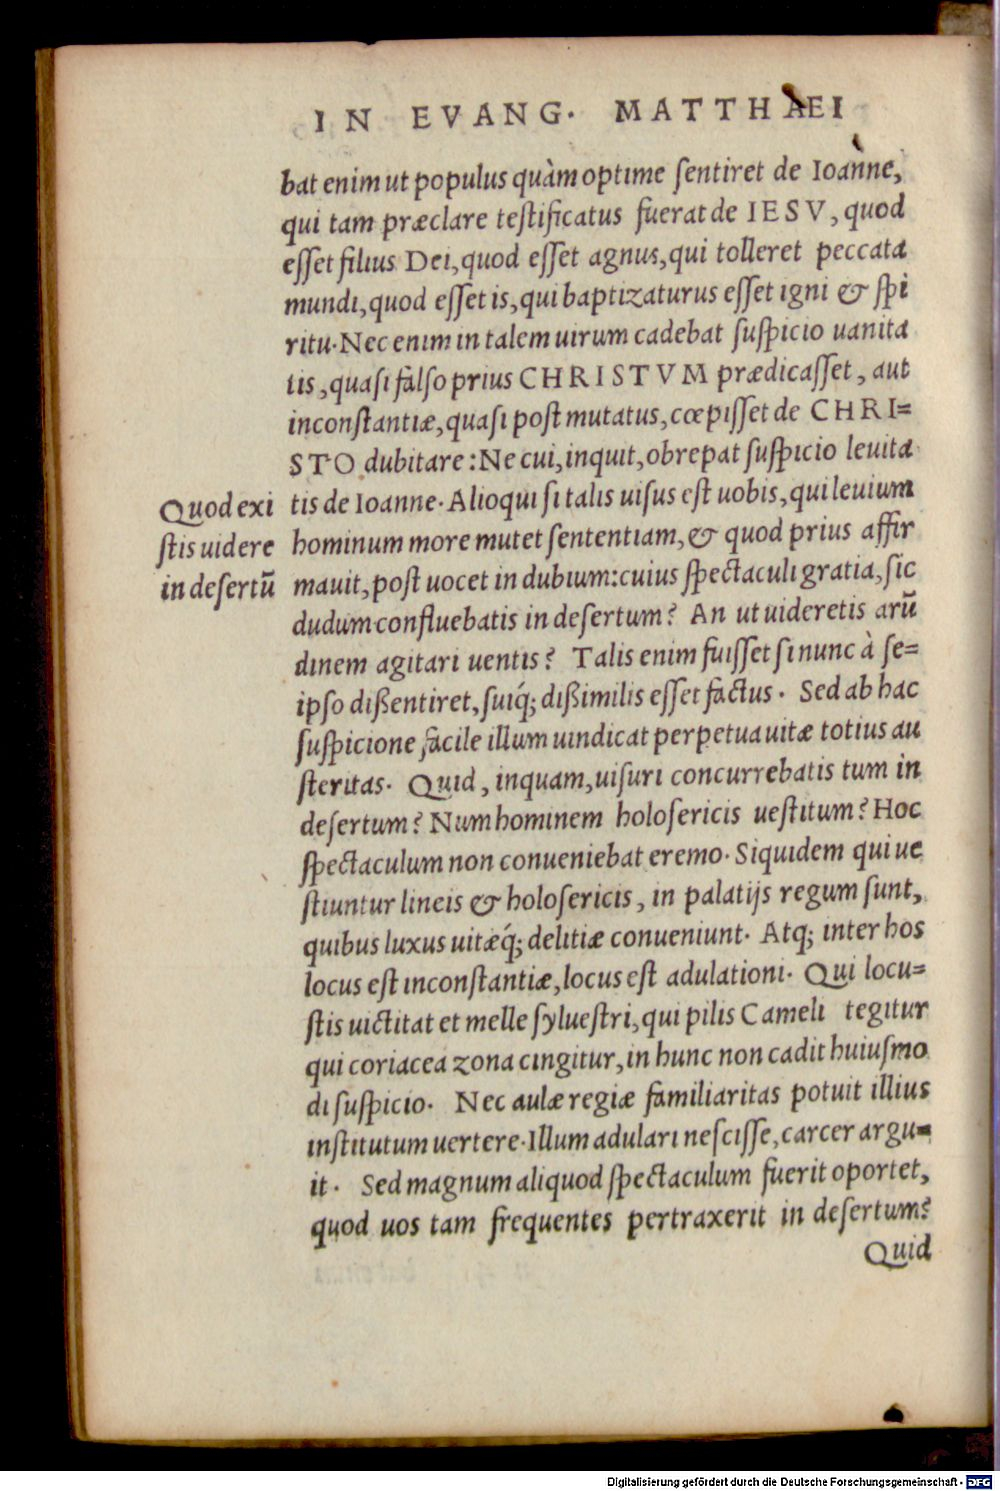 IN EVANG. MATTHAEI
bat enim ut populus quàm optime ſentiret de Ioanne,
qui tam præclare teſtificatus fuerat de IESV, quod
eſſet filius Dei, quod eſſet agnus, qui tolleret peccata
mundi, quod eſſet is, qui baptizaturus eſſet igni & ſpi
ritu. Nec enim in talem uirum cadebat ſuſpicio uanita
tis, quaſi falſo prius CHRISTVM prædicaſſet, aut
inconſtantiæ, quaſi poſt mutatus, cœpiſſet de CHRI=
STO dubitare: Ne cui, inquit, obrepat ſuſpicio leuita
Quod exi
ſtis uidere
in deſertũ
tis de Ioanne. Alioqui ſi talis uiſus eſt uobis, qui leuium
hominum more mutet ſententiam, & quod prius affir
mauit, poſt uocet in dubium: cuius ſpectaculi gratia, ſic
dudum confluebatis in deſertum? An ut uideretis arũ
dinem agitari uentis? Talis enim fuiſſet ſi nunc à ſe=
ipſo dißentiret, ſuiq́; dißimilis eſſet factus. Sed ab hac
ſuſpicione facile illum uindicat perpetua uitæ totius au
ſteritas. Quid, inquam, uiſuri concurrebatis tum in
deſertum? Num hominem holoſericis ueſtitum? Hoc
ſpectaculum non conueniebat eremo. Siquidem qui ue
ſtiuntur lineis & holoſericis, in palatijs regum ſunt,
quibus luxus uitæq́; delitiæ conueniunt. Atq; inter hos
locus eſt inconſtantiæ, locus eſt adulationi. Qui locu=
ſtis uictitat et melle ſylueſtri, qui pilis Cameli tegitur
qui coriacea zona cingitur, in hunc non cadit huiuſmo
di ſuſpicio. Nec aulæ regiæ familiaritas potuit illius
inſtitutum uertere. Illum adulari neſciſſe, carcer argu=
it. Sed magnum aliquod ſpectaculum fuerit oportet,
quod uos tam frequentes pertraxerit in deſertum?
Quid
Digitalisierung gefördert durch die Deutsche Forschungsgemeinschaft - DFG